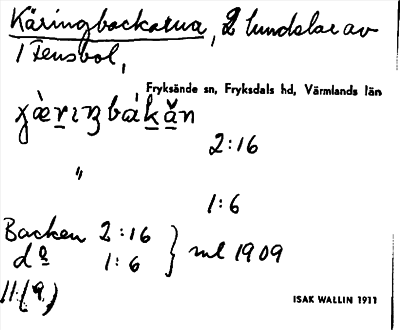 Käringbackarna, 2 lundelar av
1 Stensbol,
Fryksände sn, Fryksdals hd, Värmlands län
2:16
"
1:6
Backen 2:16
dº 1:6 } ml 1909
ISAK WALLIN 1911